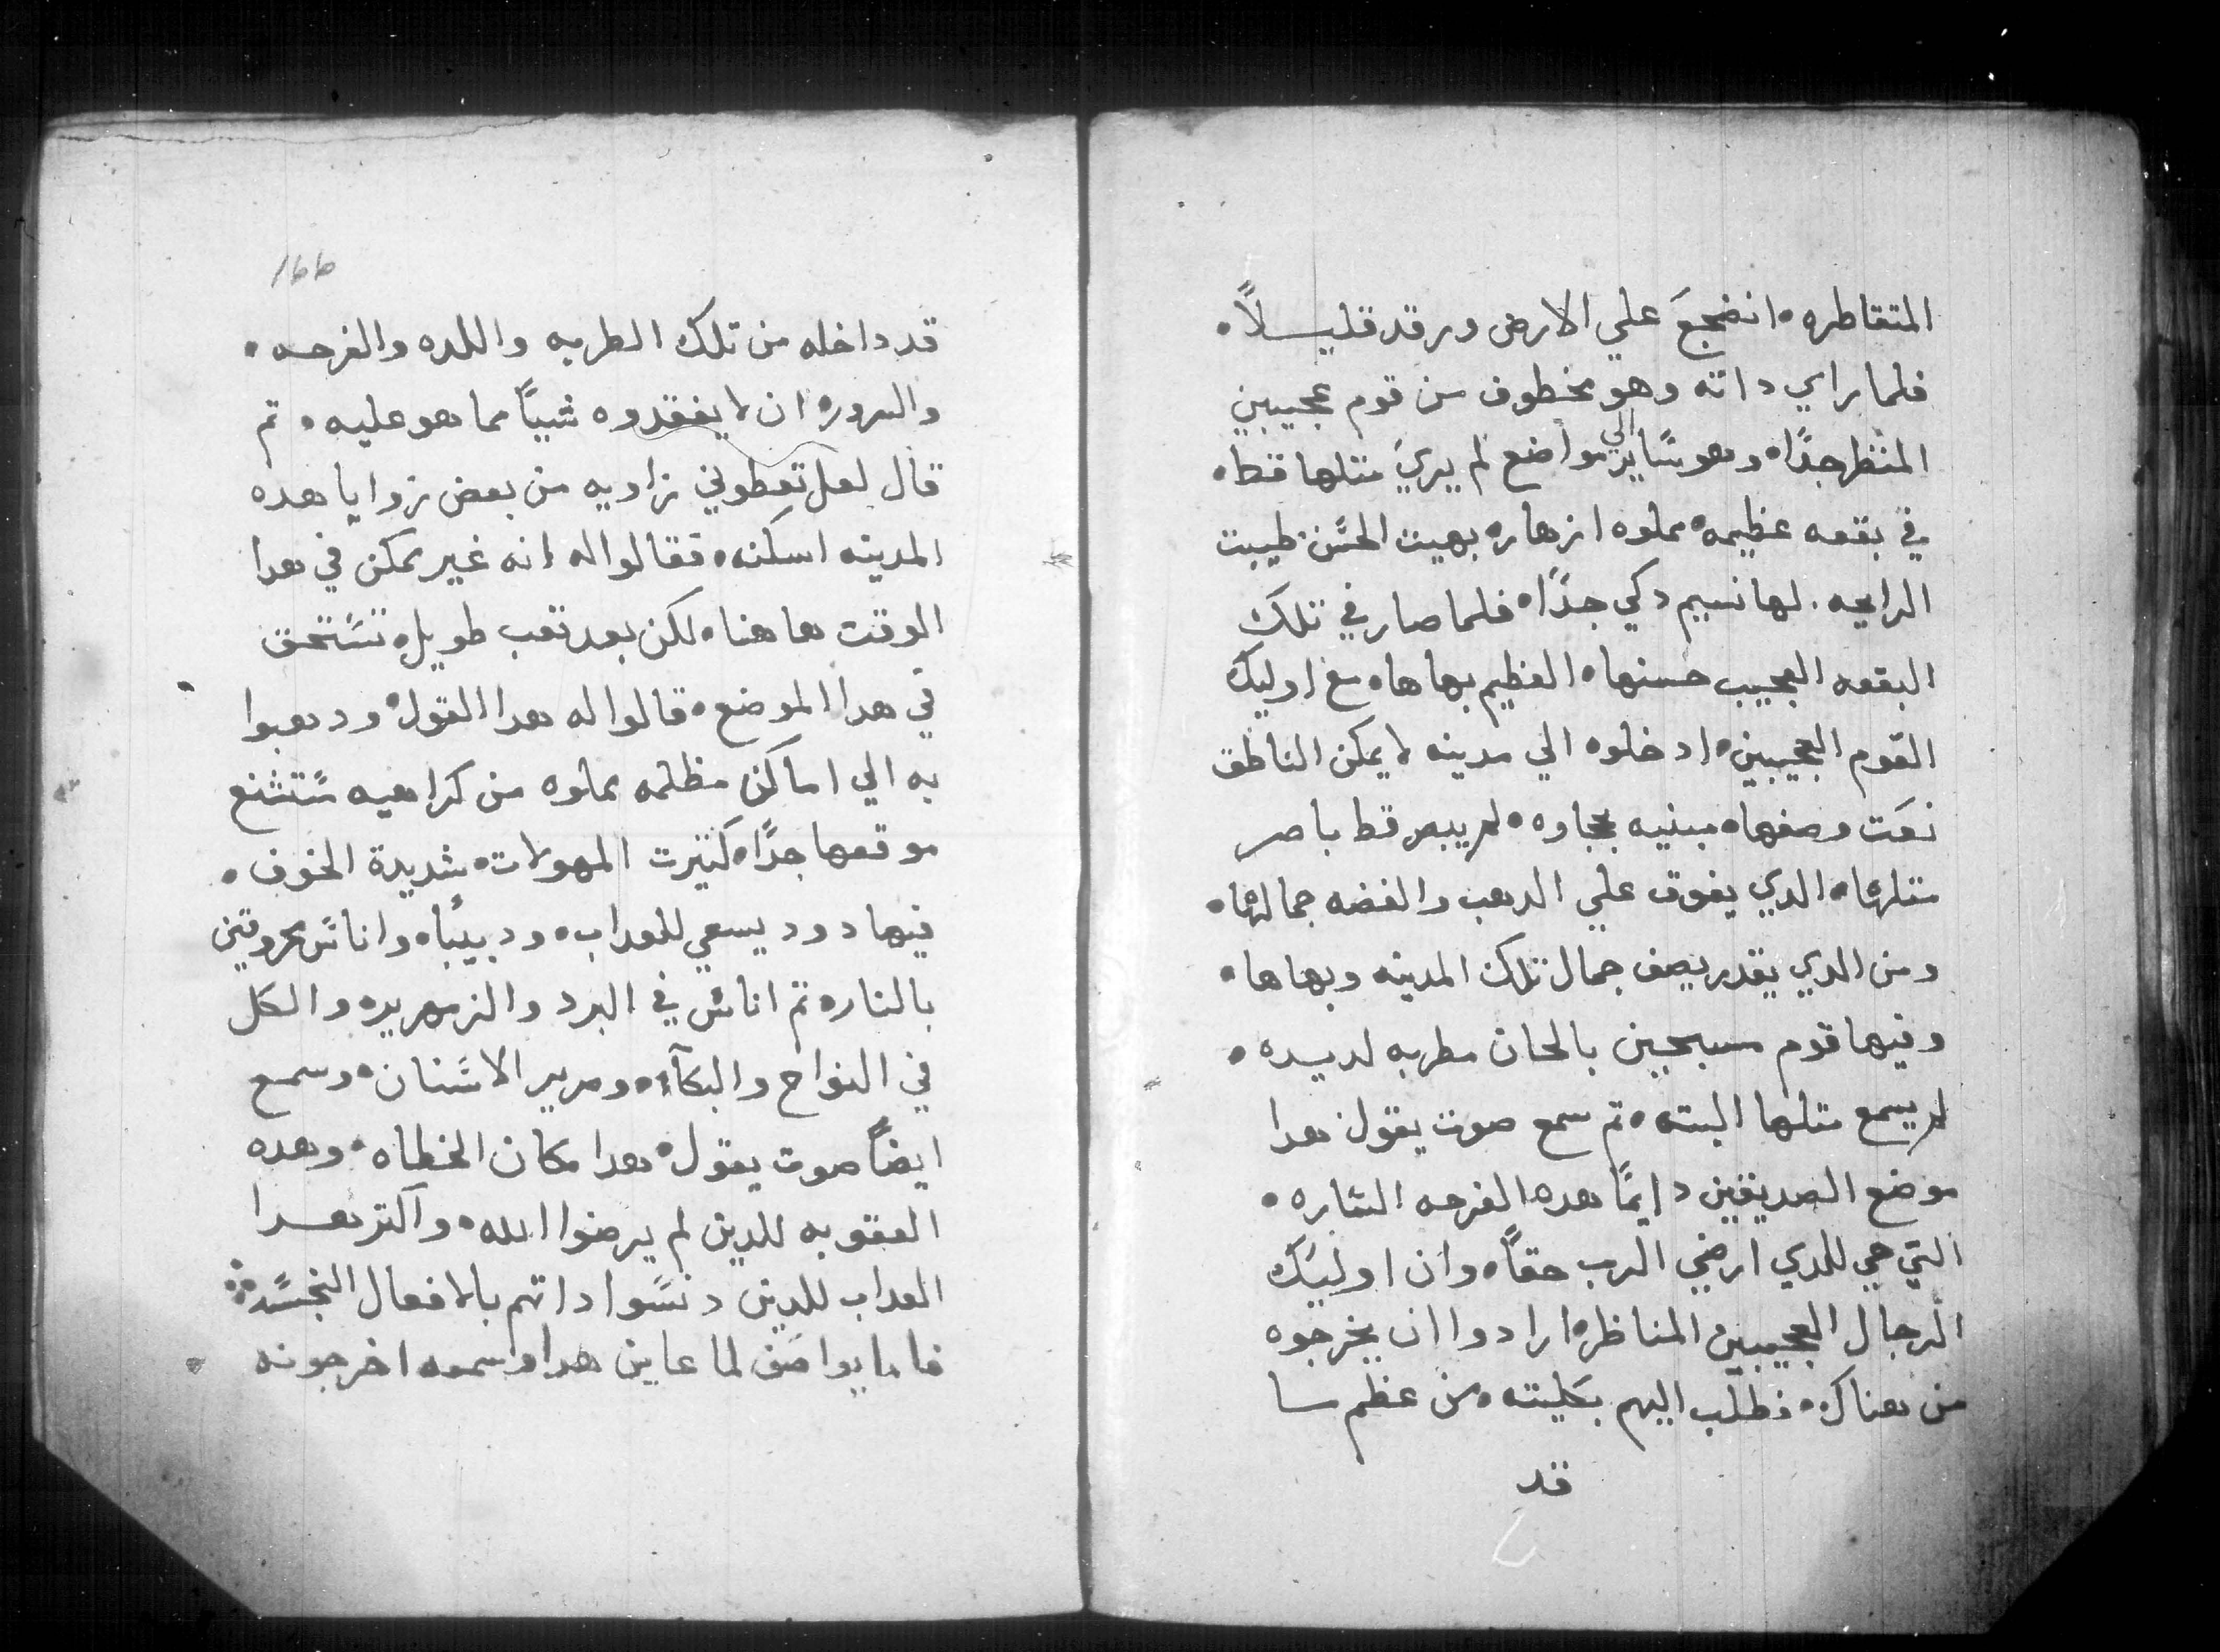 المتقاطره • انضجعَ علي الارض ورقد قليلاً •
فلما راي داته وهو مخطوف من قوم عجيبين
المنظر جدًا • وهو سًاير الي مواضع لم يريَ متلها قط •
في بقعه عظيمه • مملوه ازهاره بهيت الحسًن • طيبت
الرايحه . لها نسيم دكي جدًا • فلما صار في تلك
البقعه العجيب حسنها • العظيم بهاها • مع اوليك
القوم العجيبين • ادخلوه الي مدينه لا يمكن الناطق
نعَت وصفها • مبنيه بحجاره • لم يبصر قط باصر
متلها • الدي يفوق علي الدهب والفضه جمالها •
ومن الدي يقدر يصف جمال تلك المدينه وبهاها •
وفيها قوم مسبحين بالحان مطربه لديده •
لم يسمع متلها البته • تم سمع صوت يقول هدا
موضع الصديقين دايمًا هده الفرحه السًاره •
التي هي للدي ارضي الرب حقاً • وان اوليك
الرجال العجيبين المناظر • ارادوا ان يخرجوه
من هناك • فطلب اليهم بكليته • من عظم ما
قد
166
قد داخله من تلك الطربه واللده والفرحه •
والسرور • ان لا يفقدوه شيياً مما هو عليه • تم
قال لعل تعطوني زاويه من بعض زوايا هده
المدينه اسكنه • فقالوا له انه غير ممكن في هدا
الوقت هاهنا • لكن بعد تعب طويل • تسًتحق
في هدا الموضع • قالوا له هدا القول • ودهبوا
به الي اماكن مظلمه مملوه من كراهيه مسًتشنع
موقعها جدًا • كتيرت المهولات • شديدة الخوف •
فيها دود يسعي للعداب • ودبيبًا • واناسً محروقين
بالنار • تم اناسً في البرد والزمهرير • والكل
في النواح والبكآء • وصرير الاسًنان • وسمع
ايضاً صوت يقول • هدا مكان الخطاه • وهده
العقوبه للدين لم يرضوا الله • واكتر هدا
العداب للدين دنسًوا داتهم بالافعال النجسًه
فاما يواصَف لما عاين هدا وسمعه اخرجونه